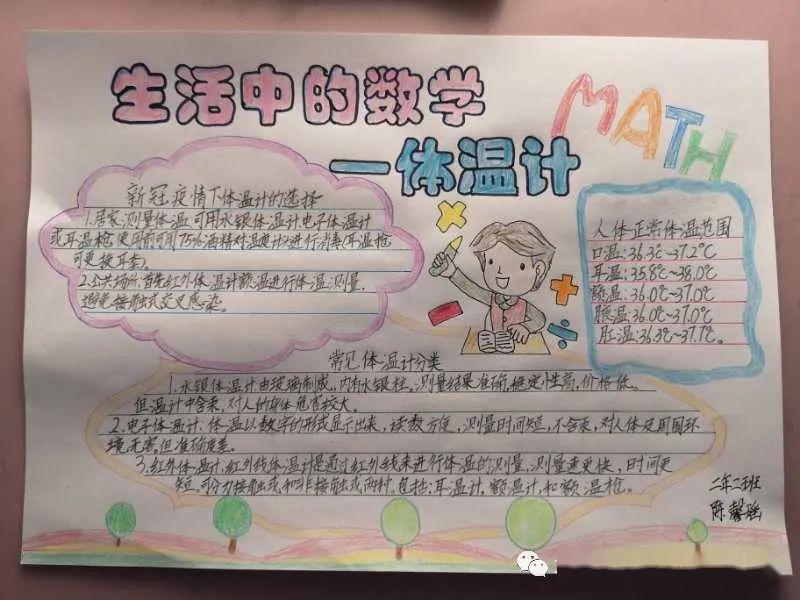 生活中的数学
MATH
一体温计
新冠疫情下体温计的选择
1.居家测量体温,可用水银体温计电子体温计
或耳温枪,使用前可用75%酒精对温度计进行消毒(耳温枪
可更换耳套)。
2.公共场所:首先红外体温计额温进行体温测量,
避免接触式交叉感染。
人体正常体温范围
口温:36.3℃~37.2℃
耳温:35.8℃~38.0℃
额温:36.0℃~37.0℃
腋温:36.0℃~37.0℃
肛温:36.3℃~37.7℃。
常见体温计分类
1.水银体温计由玻璃制成,内有水银柱。测量结果准确,稳定性高,价格低。
但温计中含汞,对人的身体危害较大。
2.电子体温计:体温以数字的形式显示出来,读数方便,测量时间短,不含汞,对人体及周围环
境无害。但准确度差。
3.红外体温计:红外线体温计是通过红外线来进行体温的测量,测量速更快,时间更
短,可分为接触式和非接触式两种,包括:耳温计,额温计,和额温枪。
二年二班
陈馨瑶